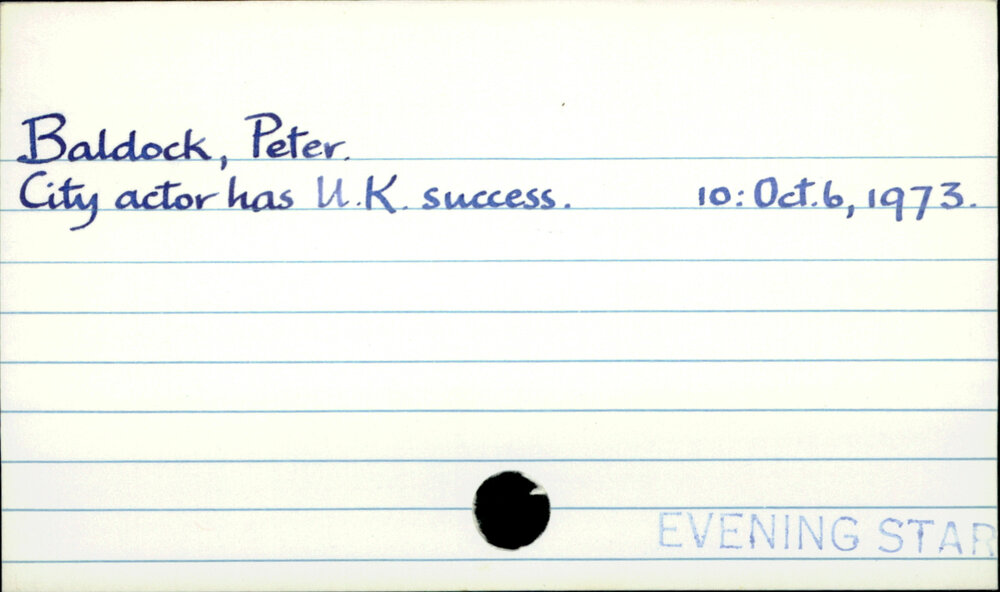 Baldock, Peter.
City actor has U.K. success. 10: Oct. 6, 1973.
EVENING STAR